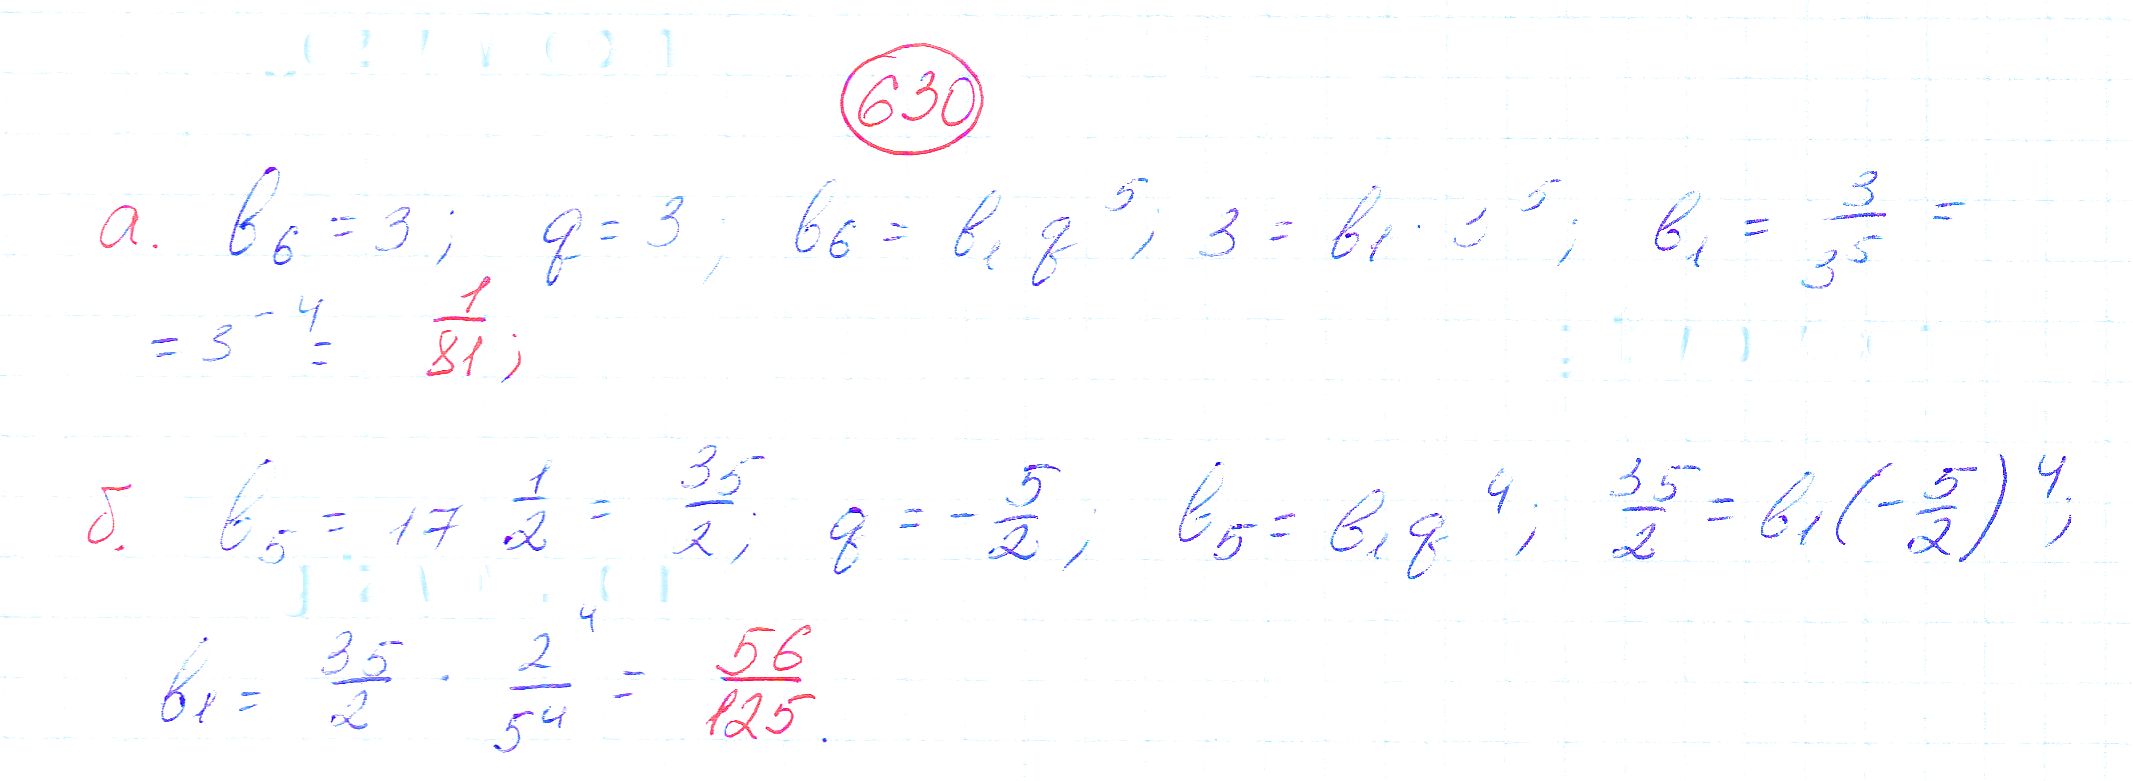 630
а. b₆ = 3; q = 3; b₆ = b₁ q⁵; 3 = b₁ · 3⁵; b₁ = 3/3⁵ =
= 3⁻⁴ = 1/81;
б. b₅ = 17 1/2 = 35/2; q = -5/2; b₅ = b₁ q⁴; 35/2 = b₁(-5/2)⁴;
b₁ = 35/2 · 2⁴/5⁴ = 56/125.